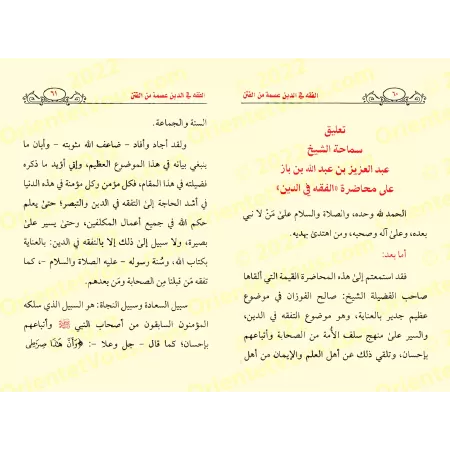 الفقه في الدين عصمة من الفتن
٦٠
تعليق
سماحة الشيخ
عبد العزيز بن عبد الله بن باز
على محاضرة «الفقه في الدين»
الحمد لله وحده، والصلاة والسلام على مَنْ لا نبي
بعده، وعلى آله وصحبه، ومن اهتدى بهديه.
أما بعد:
فقد استمعتم إلى هذه المحاضرة القيمة التي ألقاها
صاحب الفضيلة الشيخ: صالح الفوزان في موضوع
عظيم جدير بالعناية، وهو موضوع التفقه في الدين،
والسير على منهج سلف الأمة من الصحابة وأتباعهم
بإحسان، وتلقي ذلك عن أهل العلم والإيمان من أهل
الفقه في الدين عصمة من الفتن
٦١
السنة والجماعة.
ولقد أجاد وأفاد – ضاعف الله مثوبته – وأبان ما
ينبغي بيانه في هذا الموضوع العظيم، وإني أؤيد ما ذكره
فضيلته في هذا المقام، فكل مؤمن وكل مؤمنة في هذه الدنيا
في أشد الحاجة إلى التفقه في الدين والتبصر؛ حتىٰ يعلم
حكم الله في جميع أعمال المكلفين، وحتىٰ يسير علىٰ
بصيرة، ولا سبيل إلىٰ ذلك إلا بالتفقه في الدين: بالعناية
بكتاب الله، وسُنة رسوله – عليه الصلاة والسلام –، كما
تفقه مَن قبلنا مِن الصحابة ومَن بعدهم.
سبيل السعادة وسبيل النجاة: هو السبيل الذي سلكه
المؤمنون السابقون من أصحاب النبي ﷺ وأتباعهم
بإحسان؛ كما قال – جل وعلا –: ﴿وَأَنَّ هَٰذَا صِرَٰطِى
Orientica 2022